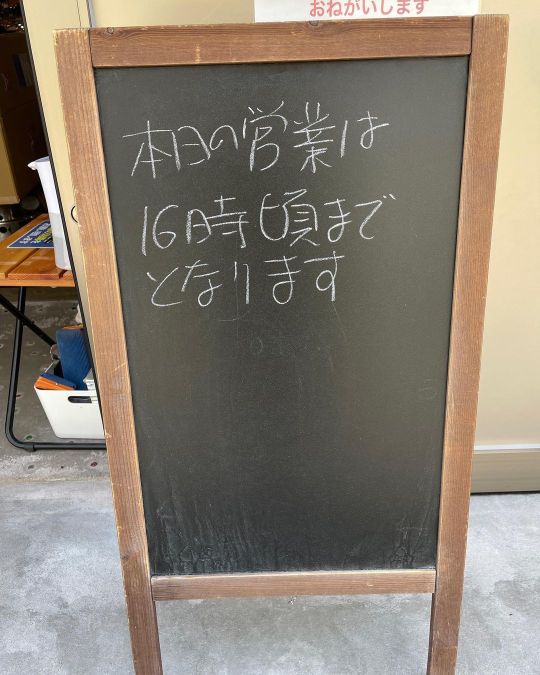 おねがいします
本日の営業は
16時頃まで
となります